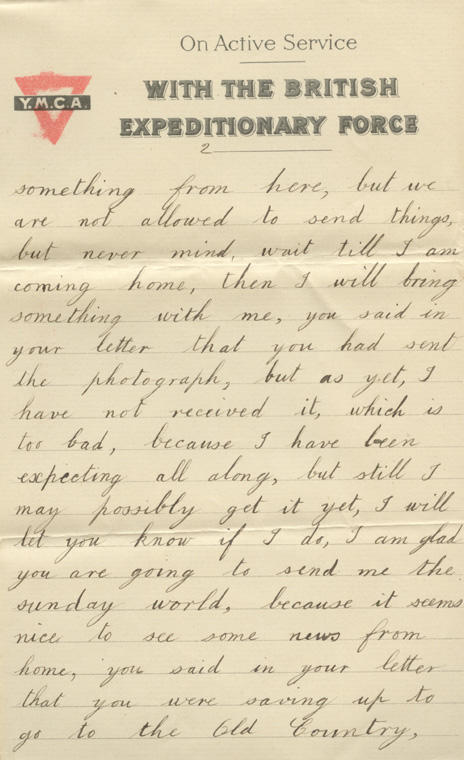 On Active Service
WITH THE BRITISH
Y.M.C.A.
EXPEDITIONARY FORCE
2
something from here, but we
are not allowed to send things,
but never mind, wait till I am
coming home, then I will bring
something with me, you said in
your letter that you had sent
the photograph, but as yet, I
have not received it, which is
too bad, because I have been
expecting all along, but still I
may possibly get it yet, I will
let you know if I do, I am glad
you are going to send me the
sunday world, because it seems
nice to see some news from
home, you said in your letter
that you were saving up to
go to the Old Country,